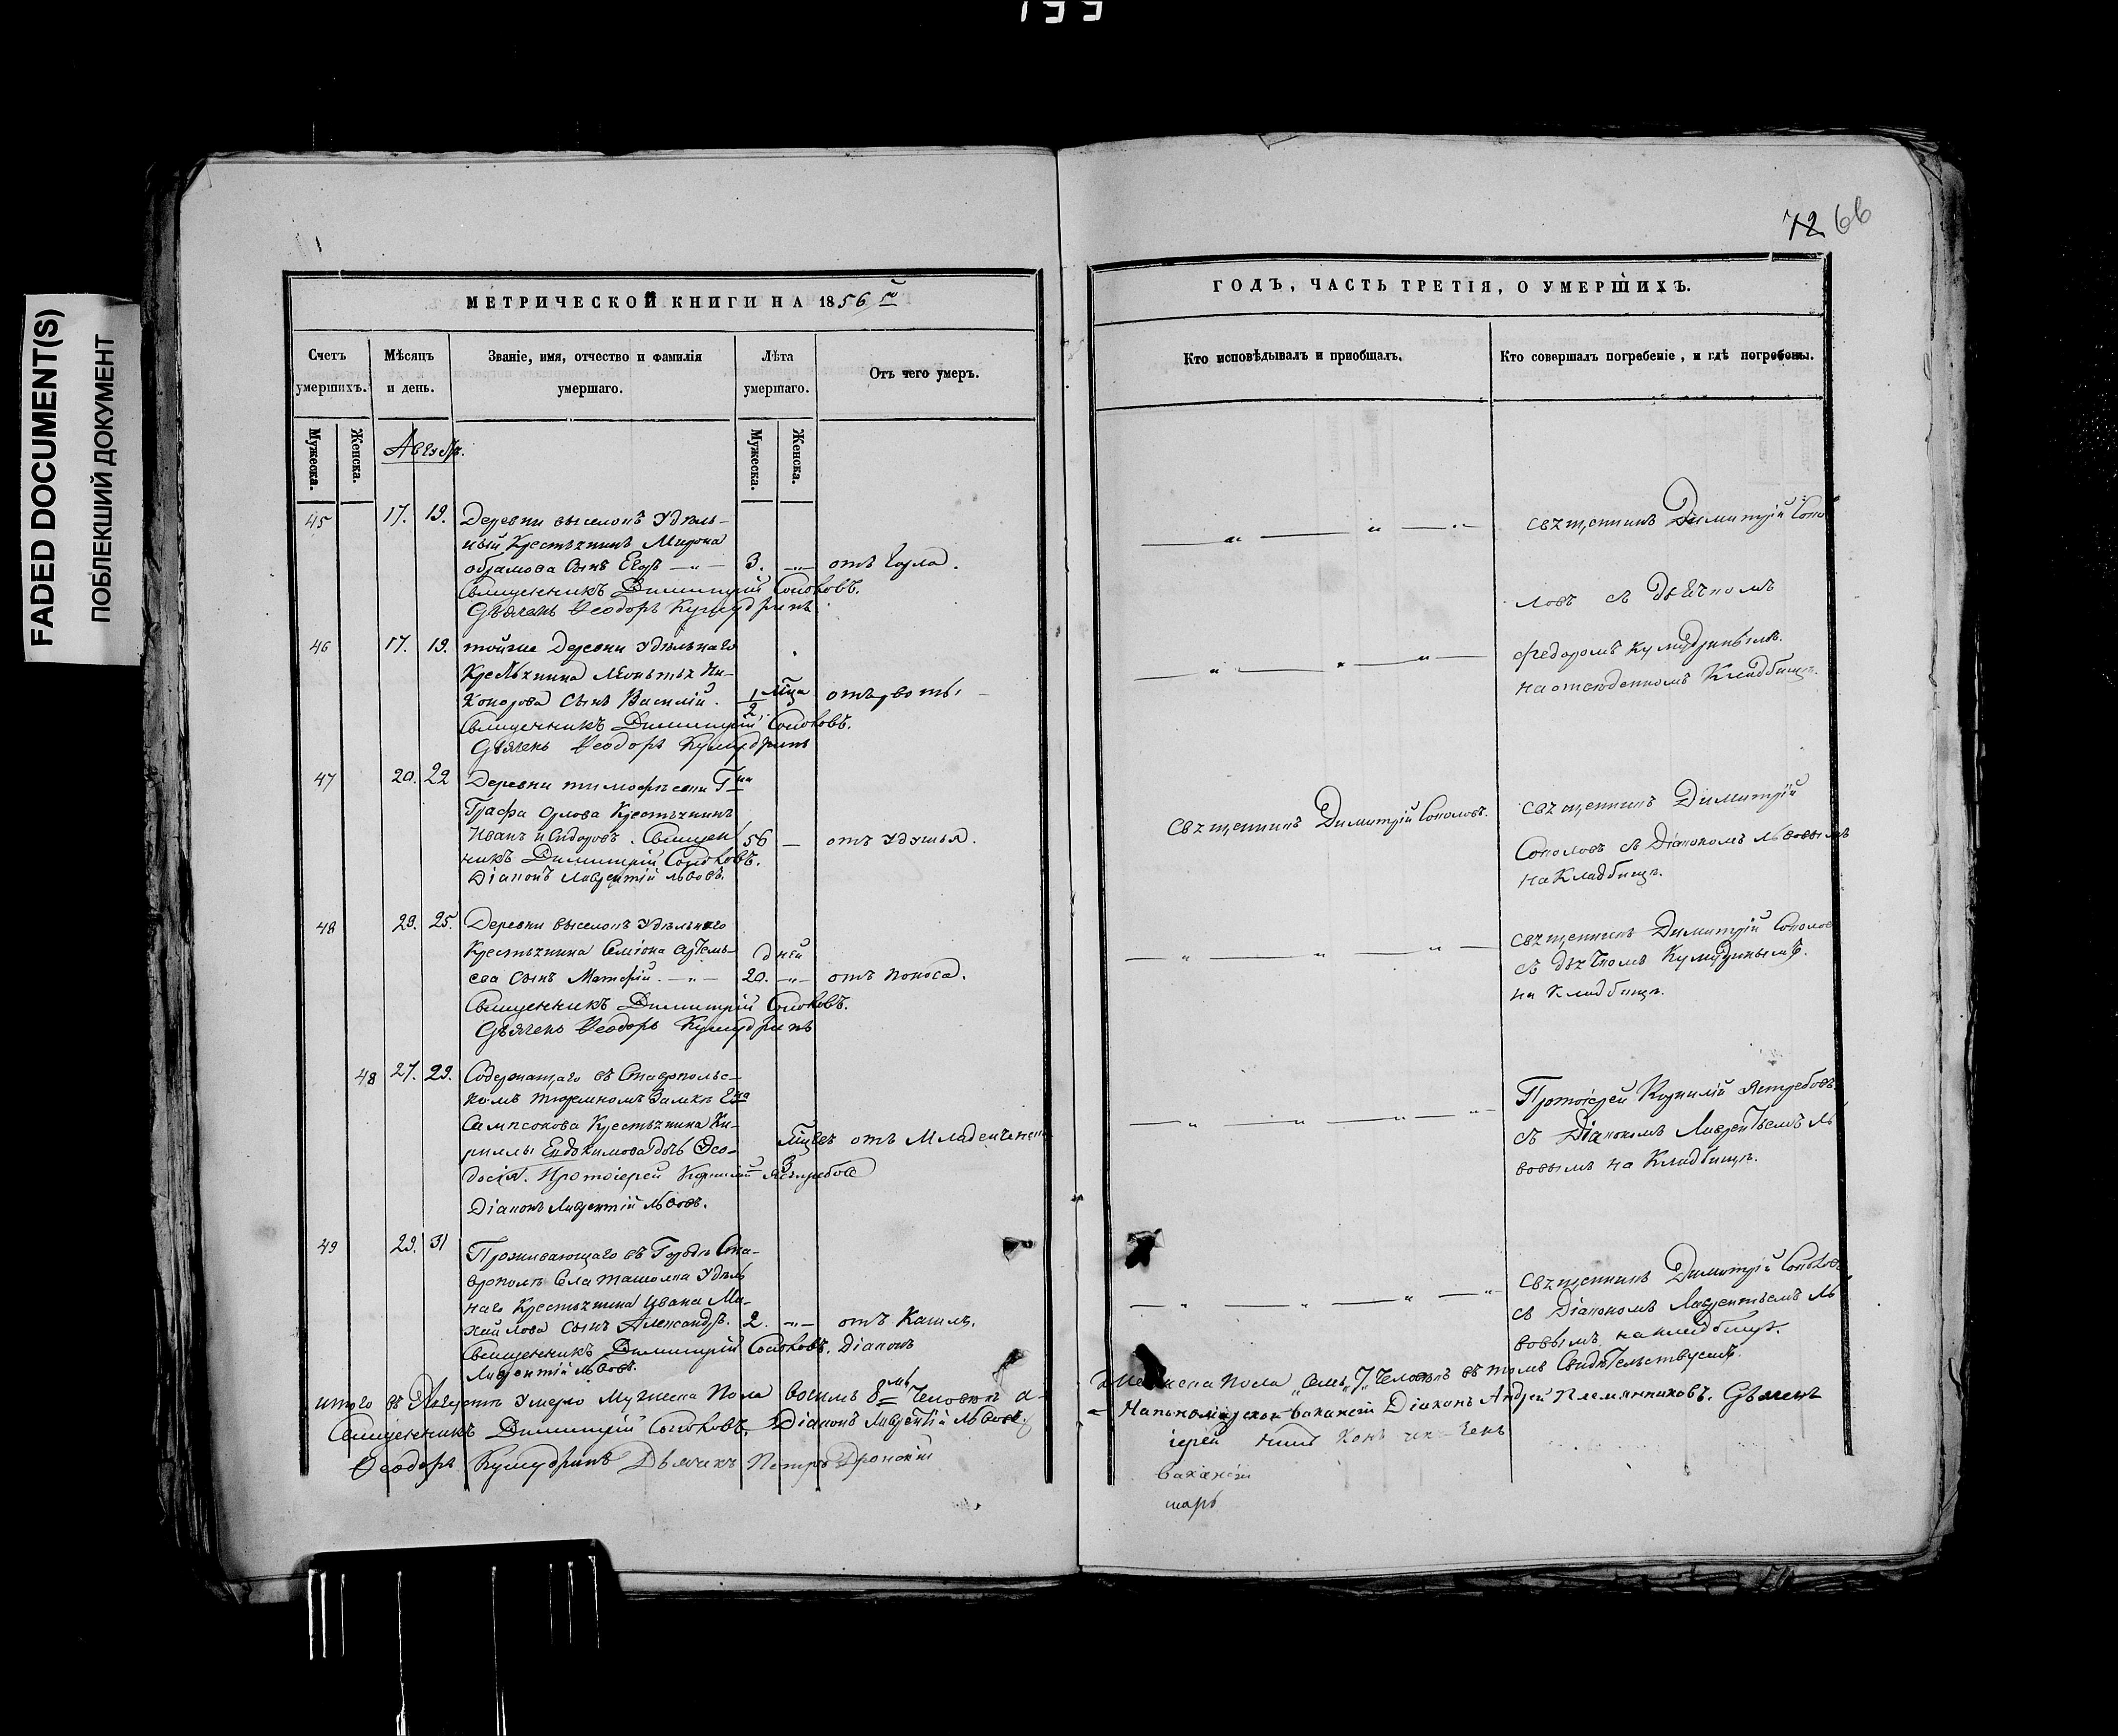 FADED DOCUMENT(S)
ПОБЛЕКШИЙ ДОКУМЕНТ
72 66
МЕТРИЧЕСКОЙ КНИГИ НА 1856 й
Счетъ умершихъ.
Мѣсяцъ и день.
Званіе, имя, отчество и фамилія умершаго.
Лѣта умершаго.
Отъ чего умеръ.
Мужеска.
Женска.
Мужеска.
Женска.
45 17. 19. Деревни выселокъ Удѣль-
ный Крестьянинъ Мирона
Абрамова Сынъ Егоръ 3. отъ Горла.
Священникъ Димитрій Соколовъ.
Дьячекъ Ѳеодоръ Кумудринъ
46 17. 19. тойже Деревни Удѣльнаго
Крестьянина Леонтья Ни-
конорова Сынъ Василій. 1/2 мца отъ рвоты
Священникъ Димитрій Соколовъ.
Дьячекъ Ѳеодоръ Кумудринъ
47 20. 22 Деревни тимофѣевки Гна
Графа Орлова Крестьянинъ
Иванъ Сидоровъ. Священ 56 отъ Удушья.
никъ Димитрій Соколовъ.
Діаконъ Лаврентій Львовъ.
48 23. 25. Деревни выселокъ Удѣльнаго
Крестьянина Семіона Артемь- дней
ева Сынъ Матфій. 20. отъ поноса.
Священникъ Димитрій Соколовъ.
Дьячекъ Ѳеодоръ Кумудринъ
48 27. 29. Содержащаго въ Ставрополь-
комъ тюремномъ Замкѣ
Сампсонова Крестьянина Ки-
риллы Евдокимова дочь Ѳео- отъ Младенческ
досія. Протоіерей Корнилій Ястребовъ
Діаконъ Лаврентій Львовъ.
49 29. 31 Проживающаго въ Городѣ Ста-
врополѣ Села ташолка Удѣль
наго Крестьянина Ивана Ми-
хайлова Сынъ Александръ. 2. отъ Кашля.
Священникъ Димитрій Соколовъ. Діаконъ
Лаврентій Львовъ.
итого въ Августѣ Умерло Мужеска Пола восемь 8мь Человекъ а
Священникъ Димитрій Соколовъ. Діаконъ Лаврентій Львовъ.
Ѳеодоръ Кумудринъ Дьячекъ Петръ
ГОДЪ, ЧАСТЬ ТРЕТІЯ, О УМЕРШИХЪ.
Кто исповѣдывалъ и пріобщалъ.
Кто совершалъ погребеніе, и гдѣ погребены.
Священникъ Димитрій Соко
ловъ съ Дьячкомъ
Федоромъ Кумудринымъ.
на отведенномъ Кладбищѣ.
Священникъ Димитрій Соколовъ.
Священникъ Димитрій
Соколовъ съ Діакономъ Львовымъ
на Кладбищѣ.
Священникъ Димитрій Соколов
съ дьячкомъ Кумудринымъ.
на Кладбищѣ.
Протоіерей Корнилій Ястребовъ
съ Діакономъ Лаврентьемъ Ль
вовымъ на Кладбищѣ.
Священникъ Димитрій Соколовъ
съ Діакономъ Лаврентьемъ Ль
вовымъ на кладбищѣ.
Женска Пола Семь 7 Человекъ въ томъ Свидѣтельствуемъ.
На пономарской вакансіи Діаконъ Андрей Племянниковъ. Дьячекъ
іерей
вакансіи
марь